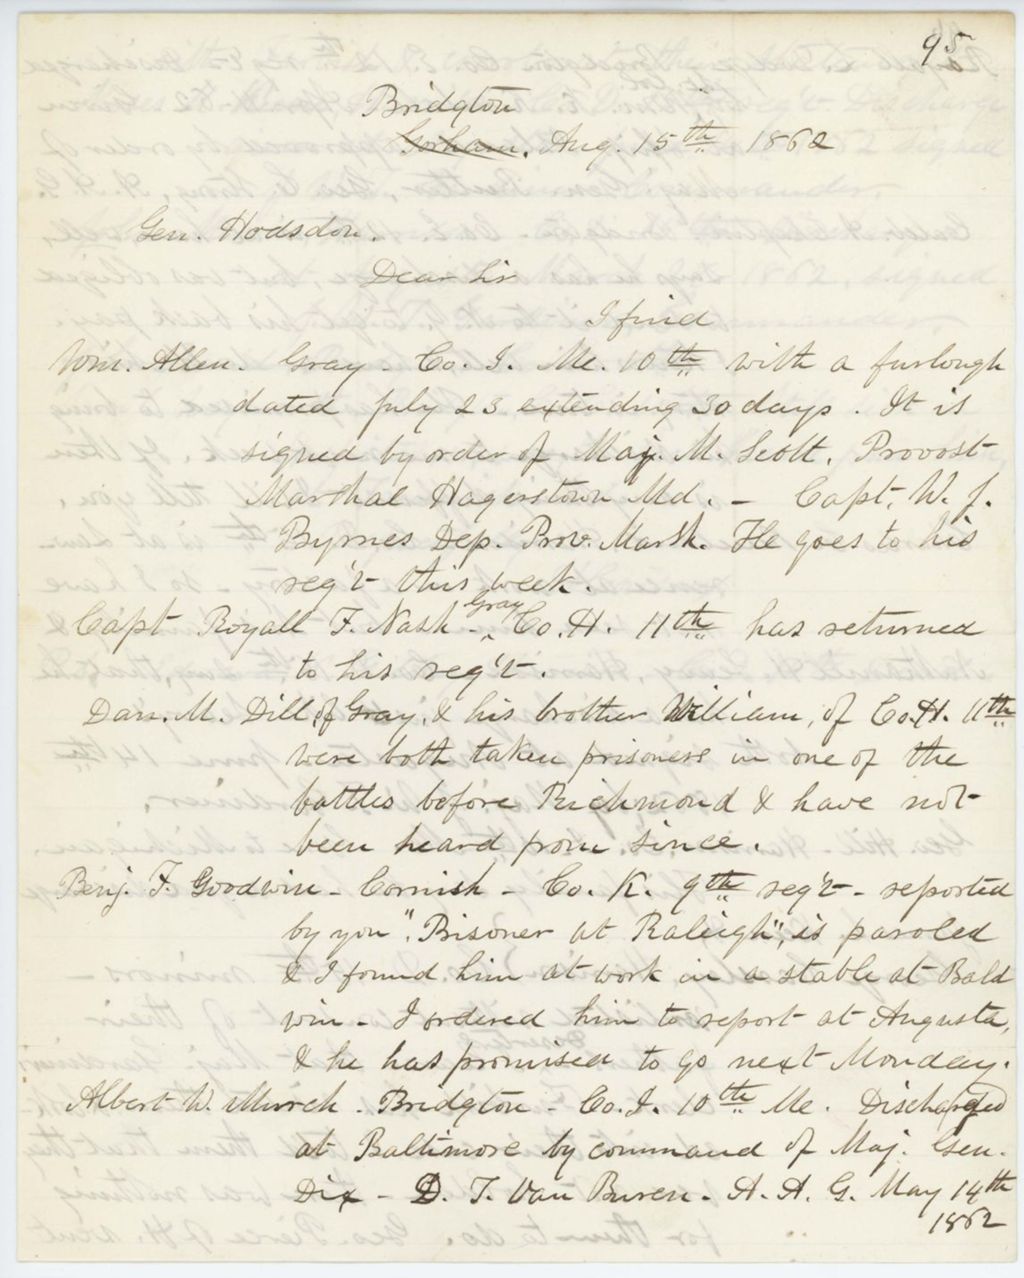 95
Bridgton
Gorham, Aug. 15th 1862
Gen. Hodsdon.
Dear Sir
I find
Wm. Allen. Gray - Co. I. Me. 10th with a furlough
dated July 23 extending 30 days. It is
signed by order of Maj. M. Scott, Provost-
Marshal Hagerstown Md. - Capt. W. J.
Byrnes Dep. Prov. Marsh. He goes to his
reg't this week.
Capt Royall F. Nash - Gray Co. H. 11th has returned
to his reg't.
Dan. M. Dill of Gray, & his brother William, of Co. H. 11th
were both taken prisoners in one of the
battles before Richmond & have not
been heard from since.
Benj. F. Goodwin - Cornish - Co. K. 9th reg't - reported
by you "Prisoner at Raleigh", is paroled
& I found him at work in a stable at Bald
win - I ordered him to report at Augusta,
& he has promised to go next Monday.
Albert W. Murch - Bridgton - Co. I. 10th Me. Discharged
at Baltimore by command of Maj. Gen.
Dix - D. T. Van Buren - A. A. G. May 14th
1862